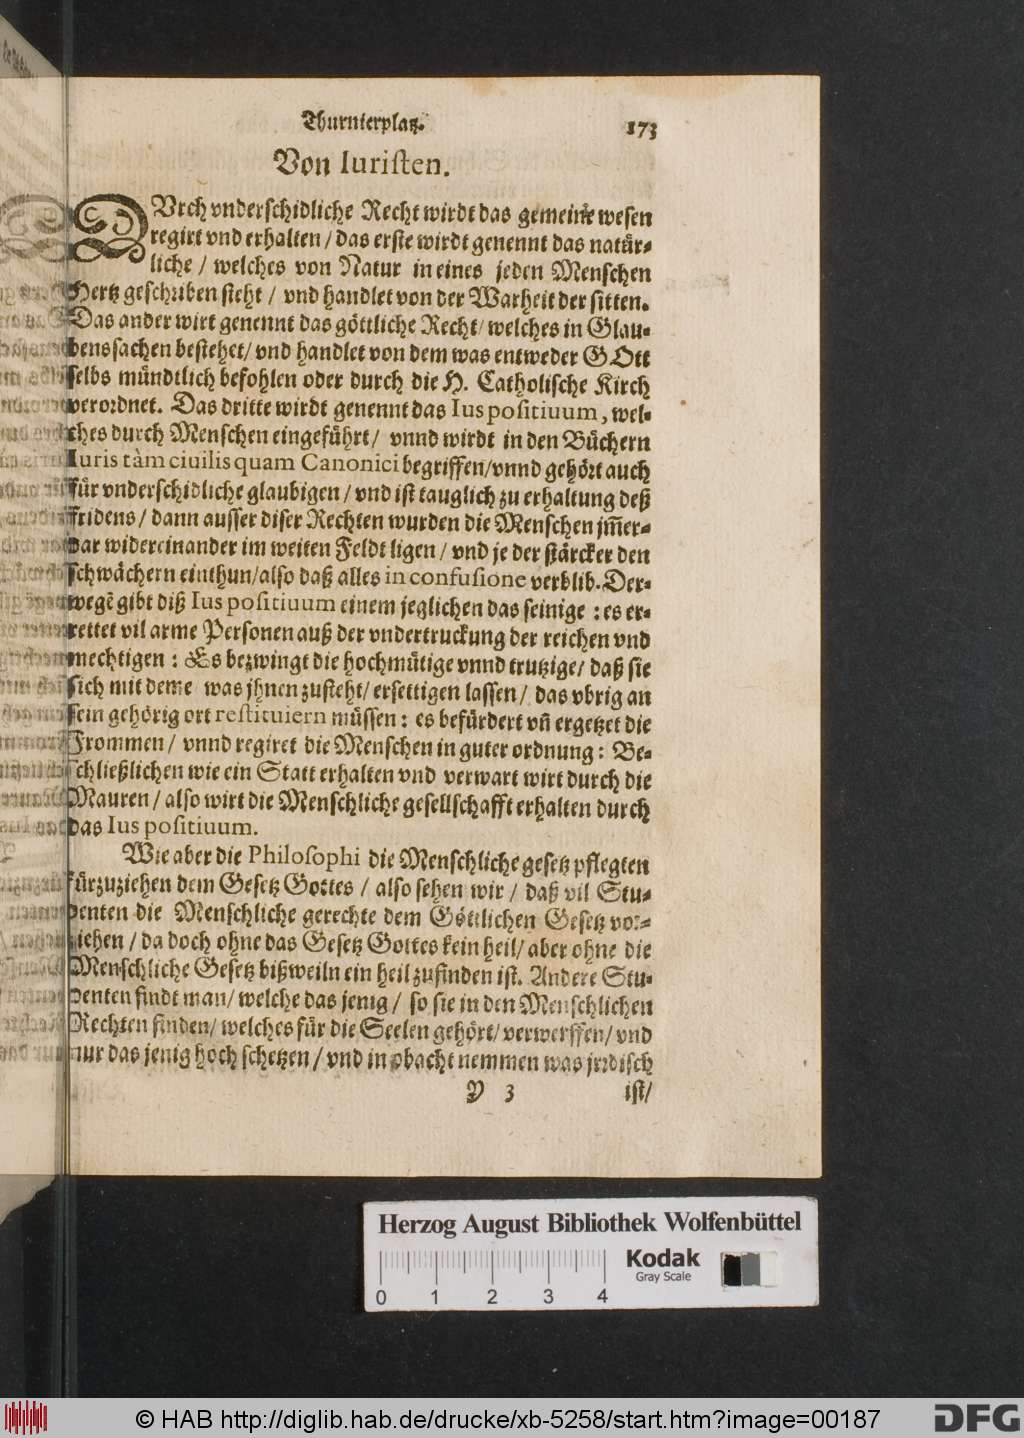 Thurnierplatz. 173
Von Iuristen.
DVrch vnderschidliche Recht wirdt das gemeine wesen
regirt vnd erhalten / das erste wirdt genennt das natür-
liche / welches von Natur in eines jeden Menschen
Hertz geschriben steht / vnd handlet von der Warheit der sitten.
Das ander wirt genennt das göttliche Recht / welches in Glau-
benssachen bestehet / vnd handlet von dem was entweder GOtt
selbs mündtlich befohlen oder durch die H. Catholische Kirch
verordnet. Das dritte wirdt genennt das Ius positiuum, wel-
ches durch Menschen eingeführt / vnnd wirdt in den Büchern
Iuris tàm ciuilis quam Canonici begriffen / vnnd gehört auch
für vnderschidliche glaubigen / vnd ist tauglich zu erhaltung deß
fridens / dann ausser diser Rechten wurden die Menschen jm̃er-
dar widereinander im weiten Feldt ligen / vnd je der stärcker den
schwächern einthun / also daß alles in confusione verblib. Der-
wegẽ gibt diß Ius positiuum einem jeglichen das seinige : es er-
rettet vil arme Personen auß der vndertruckung der reichen vnd
mechtigen : Es bezwingt die hochmütige vnnd trutzige / daß sie
sich mit deme was jhnen zusteht / ersettigen lassen / das vbrig an
sein gehörig ort restituiern müssen : es befürdert vñ ergetzet die
Frommen / vnnd regiret die Menschen in guter ordnung : Be-
schließlichen wie ein Statt erhalten vnd verwart wirt durch die
Mauren / also wirt die Menschliche gesellschafft erhalten durch
das Ius positiuum.
Wie aber die Philosophi die Menschliche gesetz pflegten
fürzuziehen dem Gesetz Gottes / also sehen wir / daß vil Stu-
denten die Menschliche gerechte dem Göttlichen Gesetz vor-
ziehen / da doch ohne das Gesetz Gottes kein heil / aber ohne die
Menschliche Gesetz bißweiln ein heil zufinden ist. Andere Stu-
denten findt man / welche das jenig / so sie in den Menschlichen
Rechten finden / welches für die Seelen gehört / verwerffen / vnd
nur das jenig hoch schetzen / vnd in obacht nemmen was jrrdisch
Y 3 ist /
Herzog August Bibliothek Wolfenbüttel
Kodak
Gray Scale
0 1 2 3 4
© HAB http://diglib.hab.de/drucke/xb-5258/start.htm?image=00187
DFG